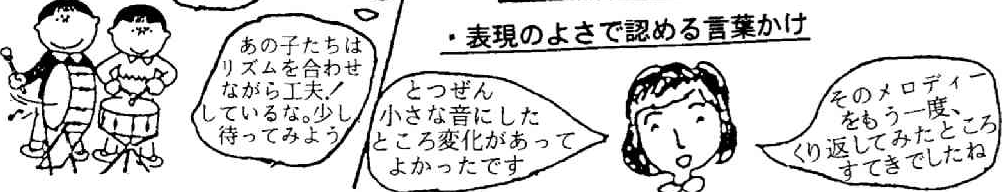 あの子たちは
リズムを合わせ
ながら工夫!
しているな。少し
待ってみよう
・表現のよさで認める言葉かけ
とつぜん
小さな音にした
ところ変化があって
よかったです
そのメロディー
をもう一度、
くり返してみたところ
すてきでしたね